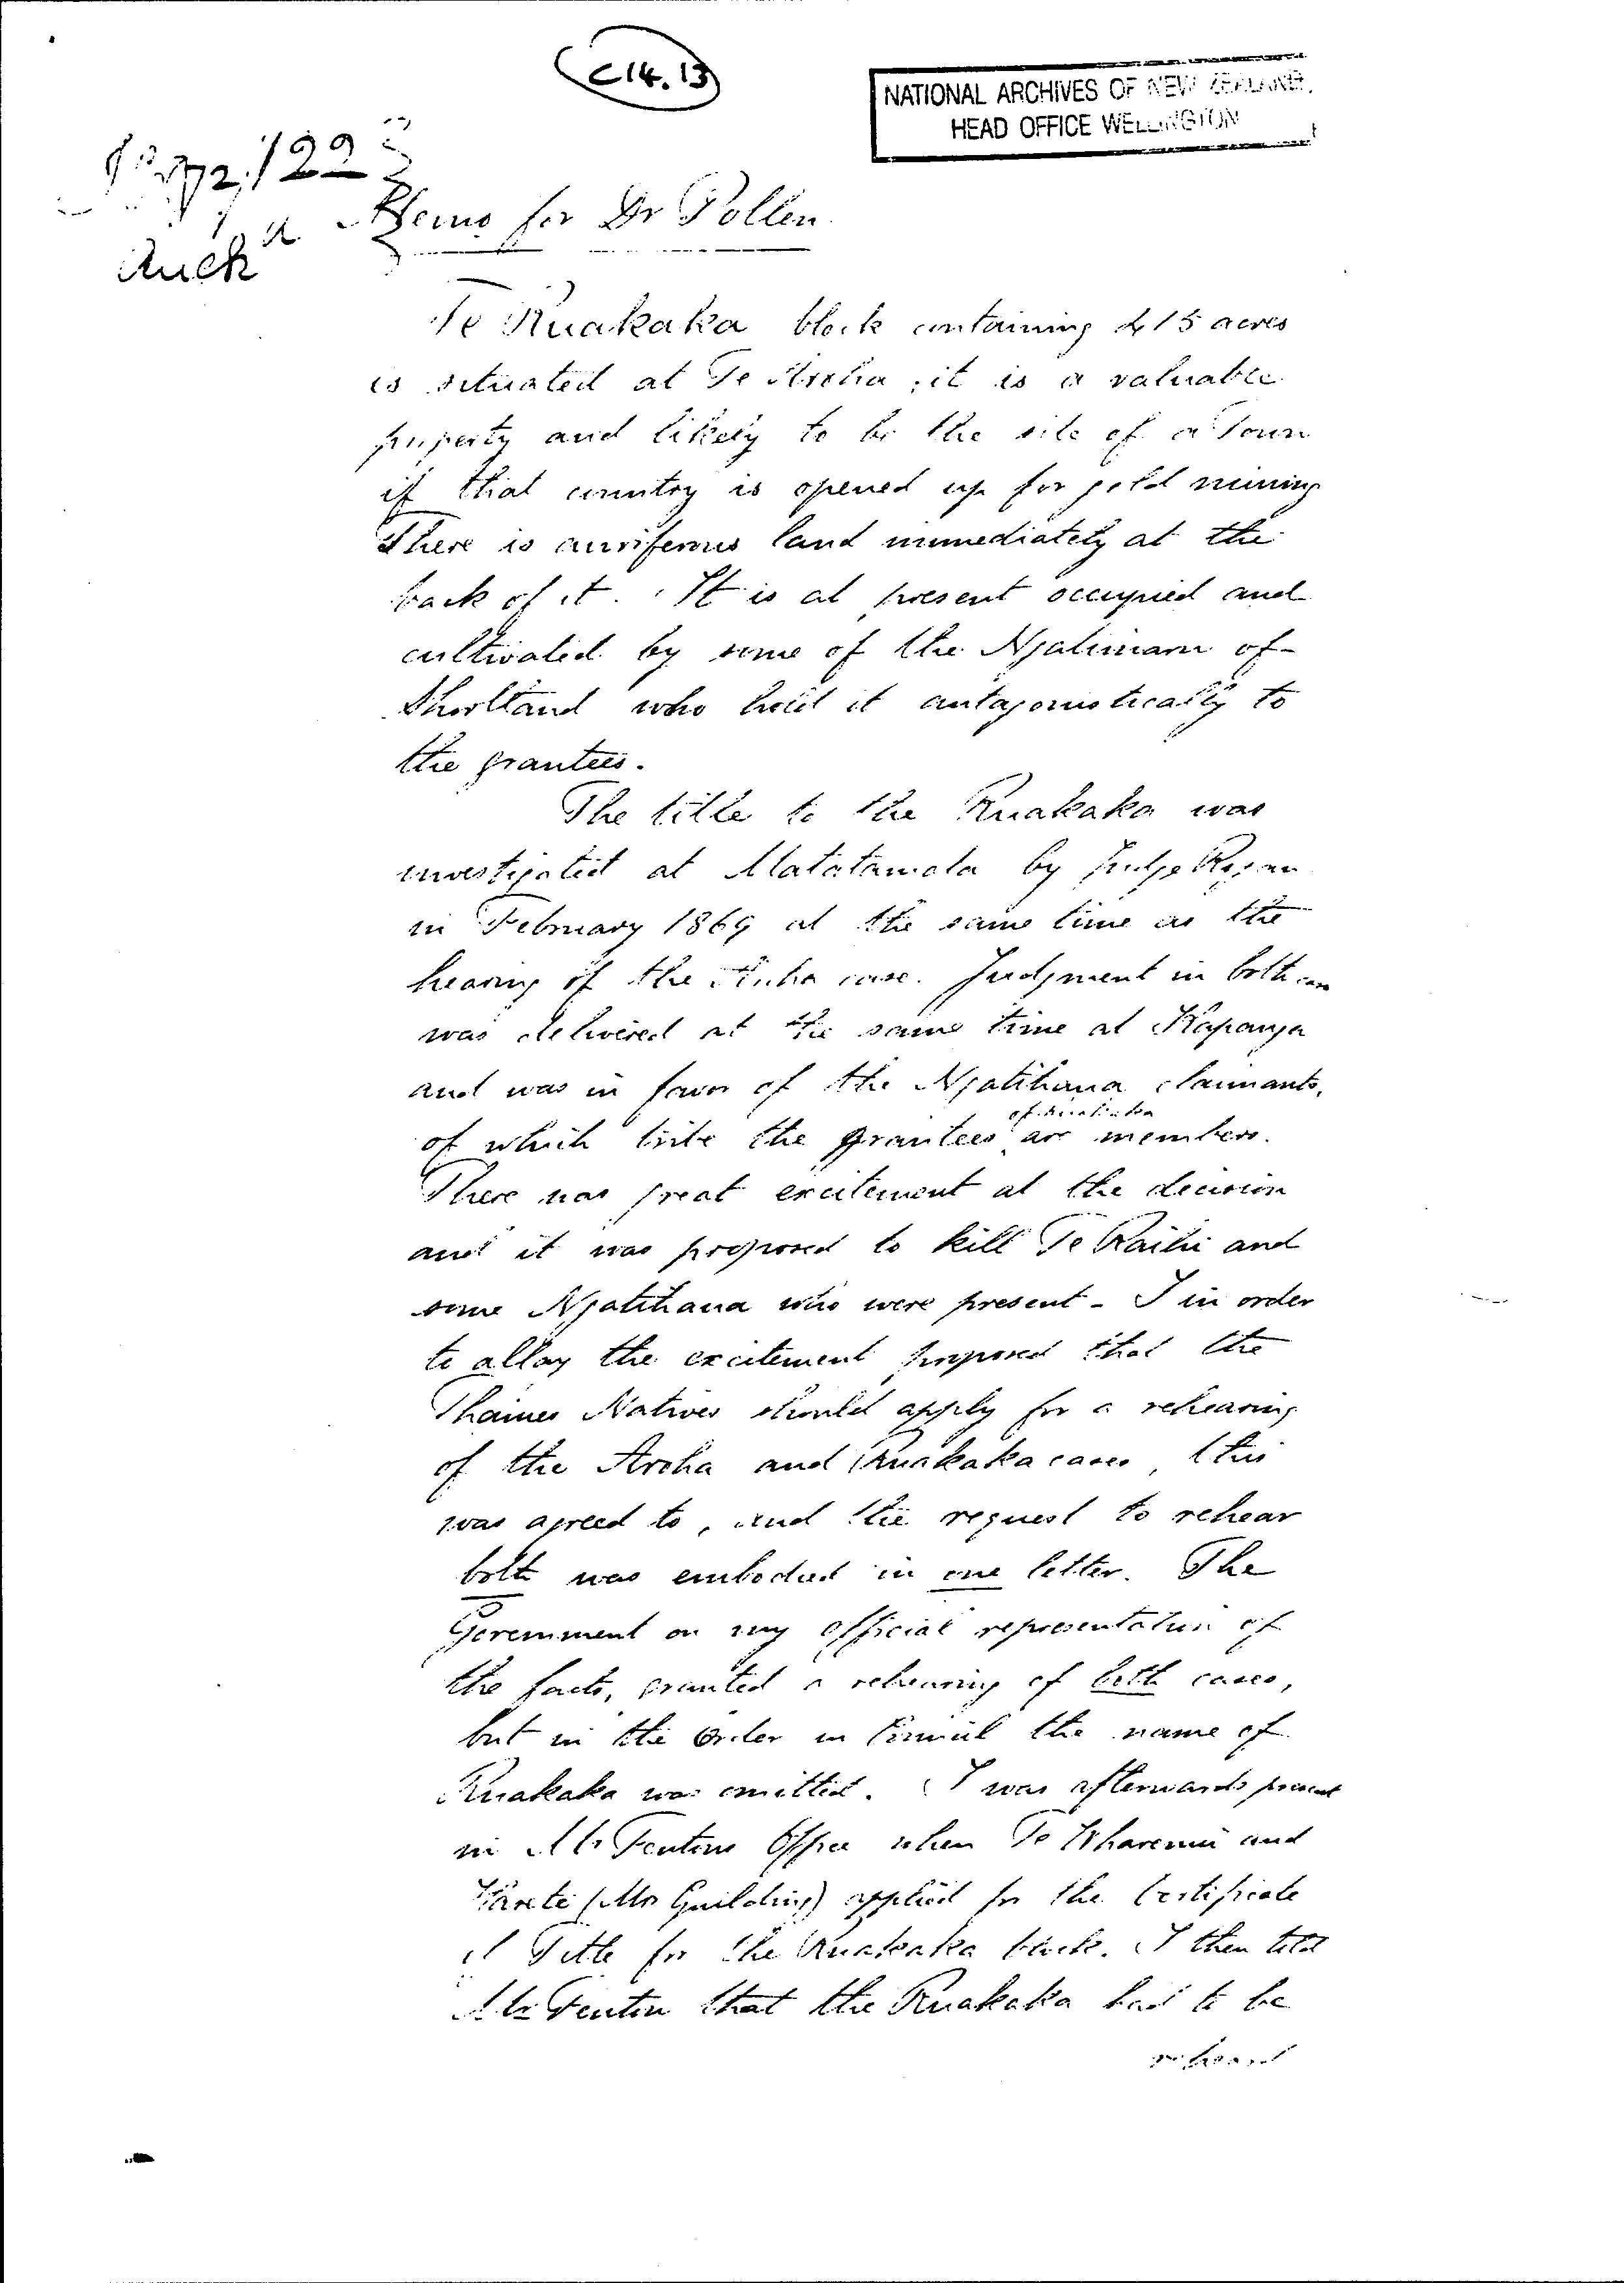 C14.13
NATIONAL ARCHIVES OF NEW ZEALAND.
HEAD OFFICE WELLINGTON
72/122
Auck
Memo for Dr Pollen
Te Ruakaka block containing 415 acres
is situated at Te Aroha; it is a valuable
property and likely to be the site of a Town
if that country is opened up for gold mining
There is auriferous land immediately at the
back of it. It is at present occupied and
cultivated by some of the Ngatimaru of
Shortland who hold it antagonistically to
the grantees.
The title to the Ruakaka was
investigated at Matatamata by Judge Rogan
in February 1869 at the same time as the
hearing of the Aroha case. Judgment in both
was delivered at the same time at Kapanga
and was in favor of the Ngatihaua claimants,
of which tribe the grantees are members.
There was great excitement at the decision
and it was proposed to kill Te Raihi and
some Ngatihaua who were present - I in order
to allay the excitement proposed that the
Thames Natives should apply for a rehearing
of the Aroha and Ruakaka cases, this
was agreed to, and the request to rehear
both was embodied in one letter. The
Government on my official representation of
the facts, granted a rehearing of both cases,
but in the Order in Council the name of
Ruakaka was omitted. I was afterwards present
in Mr Fentons Office when Te Wharenui and
Karete (Mr Guilding) applied for the Certificate
of Title for the Ruakaka block. I then told
Mr Fenton that the Ruakaka had to be
reheard